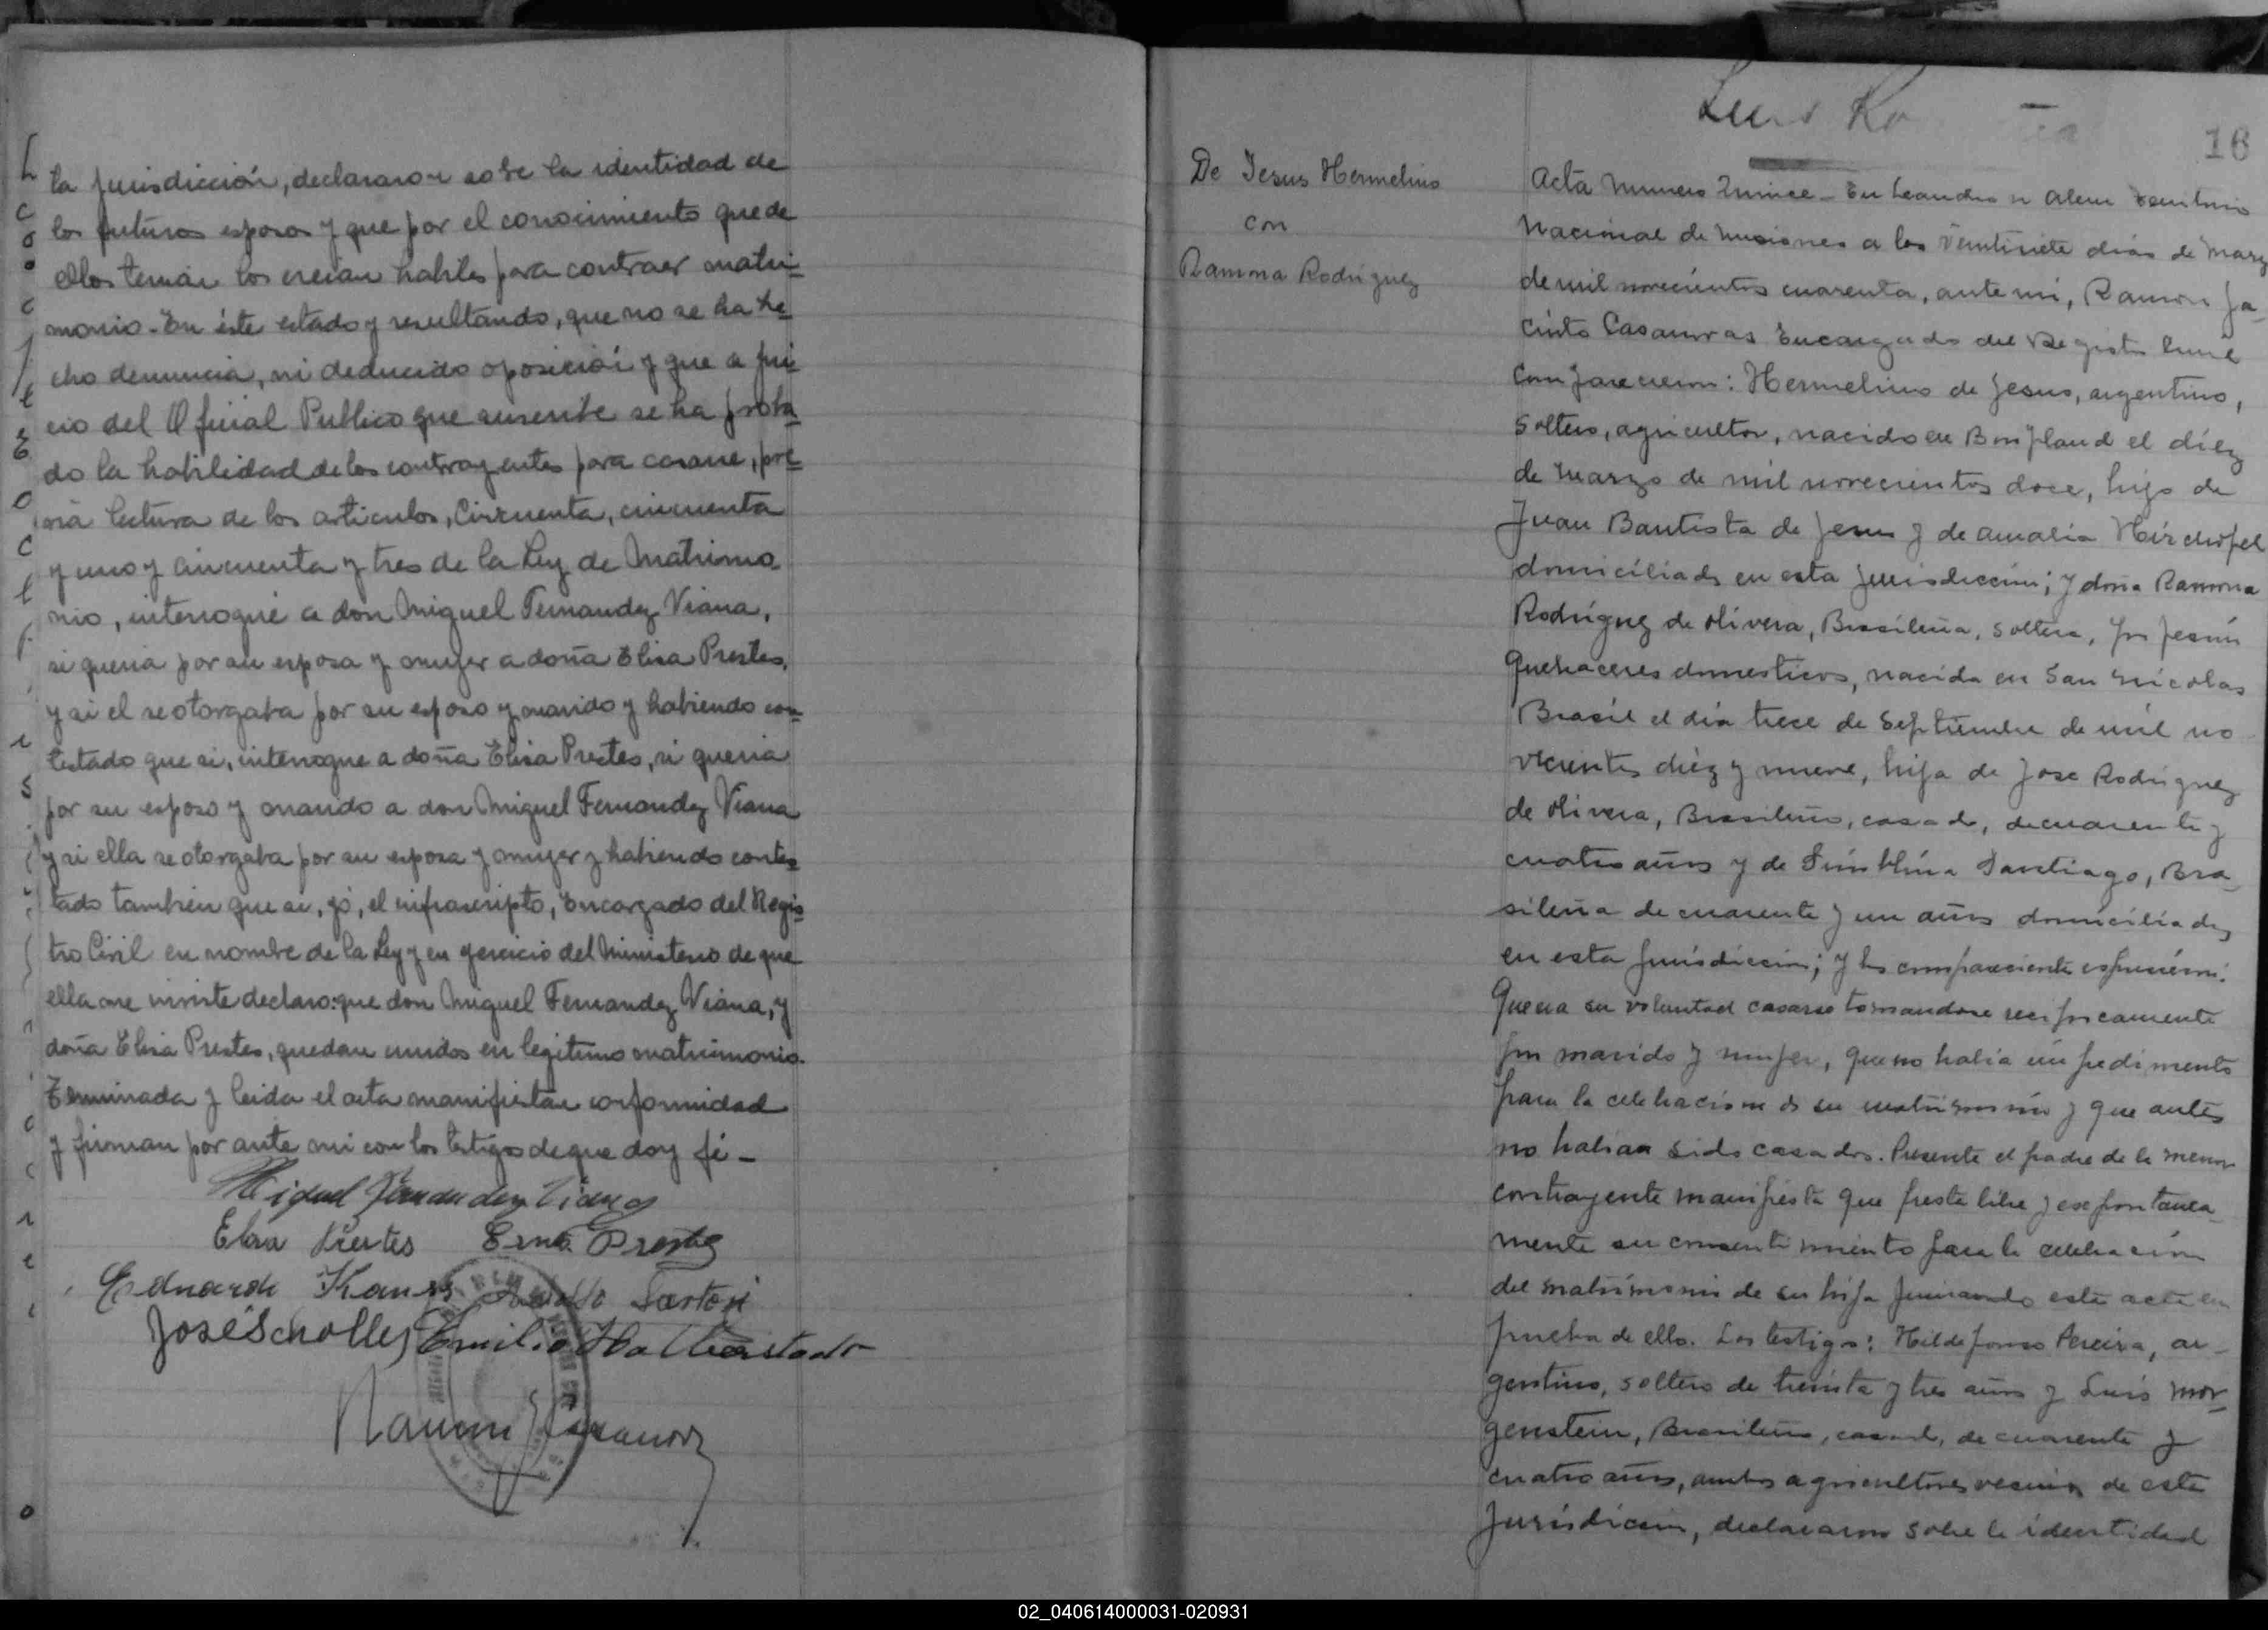 la jurisdicción, declararon sobre la identidad de
los futuros esposos y que por el conocimiento que de
ellos tenían los creían habiles para contraer matri-
monio. En éste estado y resultando, que no se ha he-
cho denuncia, ni deducido oposición y que a jui-
cio del Oficial Publico que suscribe se ha proba-
do la habilidad de los contrayentes para casarse, pre-
via lectura de los articulos, Cincuenta, cincuenta
y uno y cincuenta y tres de la Ley de Matrimo-
nio, interrogué a don Miguel Fernandez Viana,
si queria por su esposa y mujer a doña Elisa Prestes,
y si el se otorgaba por su esposo y marido y habiendo con-
testado que si, interrogue a doña Elisa Prestes, si queria
por su esposo y marido a don Miguel Fernandez Viana
y si ella se otorgaba por su esposa y mujer y habiendo contes-
tado también que si, yó, el infrascripto, Encargado del Regis-
tro Civil en nombre de la Ley y en ejercicio del Ministerio de que
ella me inviste declaro: que don Miguel Fernandez Viana, y
doña Elisa Prestes, quedan unidos en legitimo matrimonio.
Terminada y leida el acta manifiestan conformidad
y firman por ante mi con los testigos de que doy fé -
Miguel Fernandez Viana
Elisa Prestes Erno. Prestes
Eduardo Adolfo Sartori
José Scholles Emilio Halberstadt
Ramon J Casanovas
Luis Ro
16
De Jesus Hermelino
con
Ramona Rodriguez
Acta numero Quince - En Leandro N Alem territorio
Nacional de Misiones a los veintisiete días de Marzo
de mil novecientos cuarenta, ante mi, Ramon Ja-
cinto Casanovas Encargado del Registro Civil
comparecieron: Hermelino de Jesus, argentino,
soltero, agricultor, nacido en Bonpland el diez
de Marzo de mil novecientos doce, hijo de
Juan Bautista de Jesus y de Amalia Hirchofel
domiciliado en esta jurisdicción; y doña Ramona
Rodriguez de Olivera, Brasileña, soltera, profesión
Quehaceres domesticos, nacida en San Nicolas
Brasil el día trece de Septiembre de mil no
vecientos diéz y nueve, hija de Jose Rodriguez
de Olivera, Brasileño, casado, de cuarenta y
cuatro años y de Santiago, Bra-
sileña de cuarenta y un años domiciliados
en esta jurisdiccion; y los compareciente expusieron:
Que era su voluntad casarse tomandose reciprocamente
por marido y mujer, que no habia impedimento
para la celebracion de su matrimonio y que antes
no habian sido casados. Presente el padre de la menor
contrayente manifiesta que presta libre y espontanea-
mente su consentimiento para la celebración
del matrimonio de su hija firmando este acta en
prueba de ello. Los testigos: Hildefonso Pereira, ar-
gentino, soltero de treinta y tres años y Luis Mor-
genstein, Brasileño, casado, de cuarenta y
cuatro años, ambos agricultores vecinos de esta
Jurisdiccion, declararon sobre la identidad
02_040614000031-020931